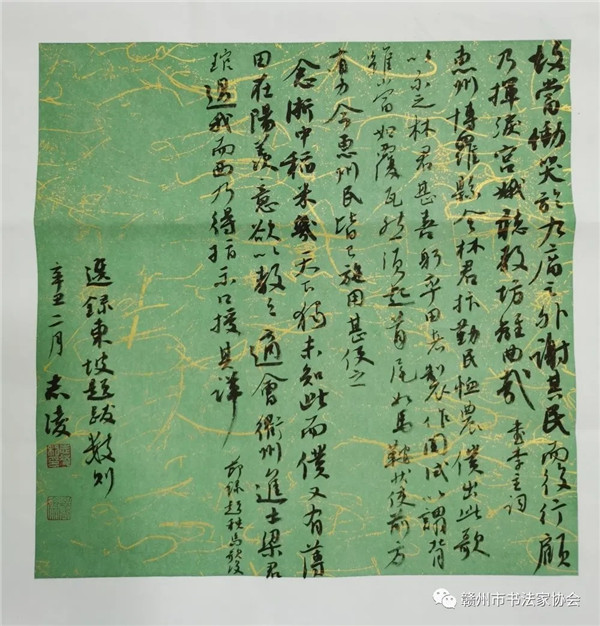 故當慟哭於九廟之外謝其民而後行顧
乃揮淚宮娥聽教坊離曲哉 書李主詞
惠州博羅縣令林君抃勤民恤農僕出此歌
以示之林君甚喜躬率田者製作閱試以謂背
雖當如覆瓦然須起首尾如馬鞍狀使前
有力今惠州民皆已施用甚便之
念浙中稻米幾天下獨未知此而僕又有薄
田在陽羨意欲以教之適會衢州進士梁君
琯過我而西乃得指示口授其詳
節錄題秧馬歌後
選錄東坡題跋數則
辛丑二月 志凌
赣州市书法家协会